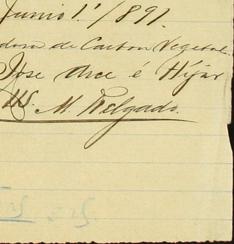 Junio 1.º/891.
dosa de Carbon Vegetal.
Jose Arce é Hijar
M. Delgado.